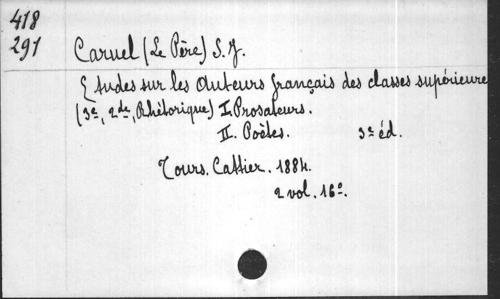 418
291
Caruel (Le Père) S. J.
Etudes sur les Auteurs français des classes supérieure
(3e, 2de, Rhétorique) I. Prosateurs.
II. Poètes. 3e éd.
Tours. Cattier. 1884.
2 vol. 16°.